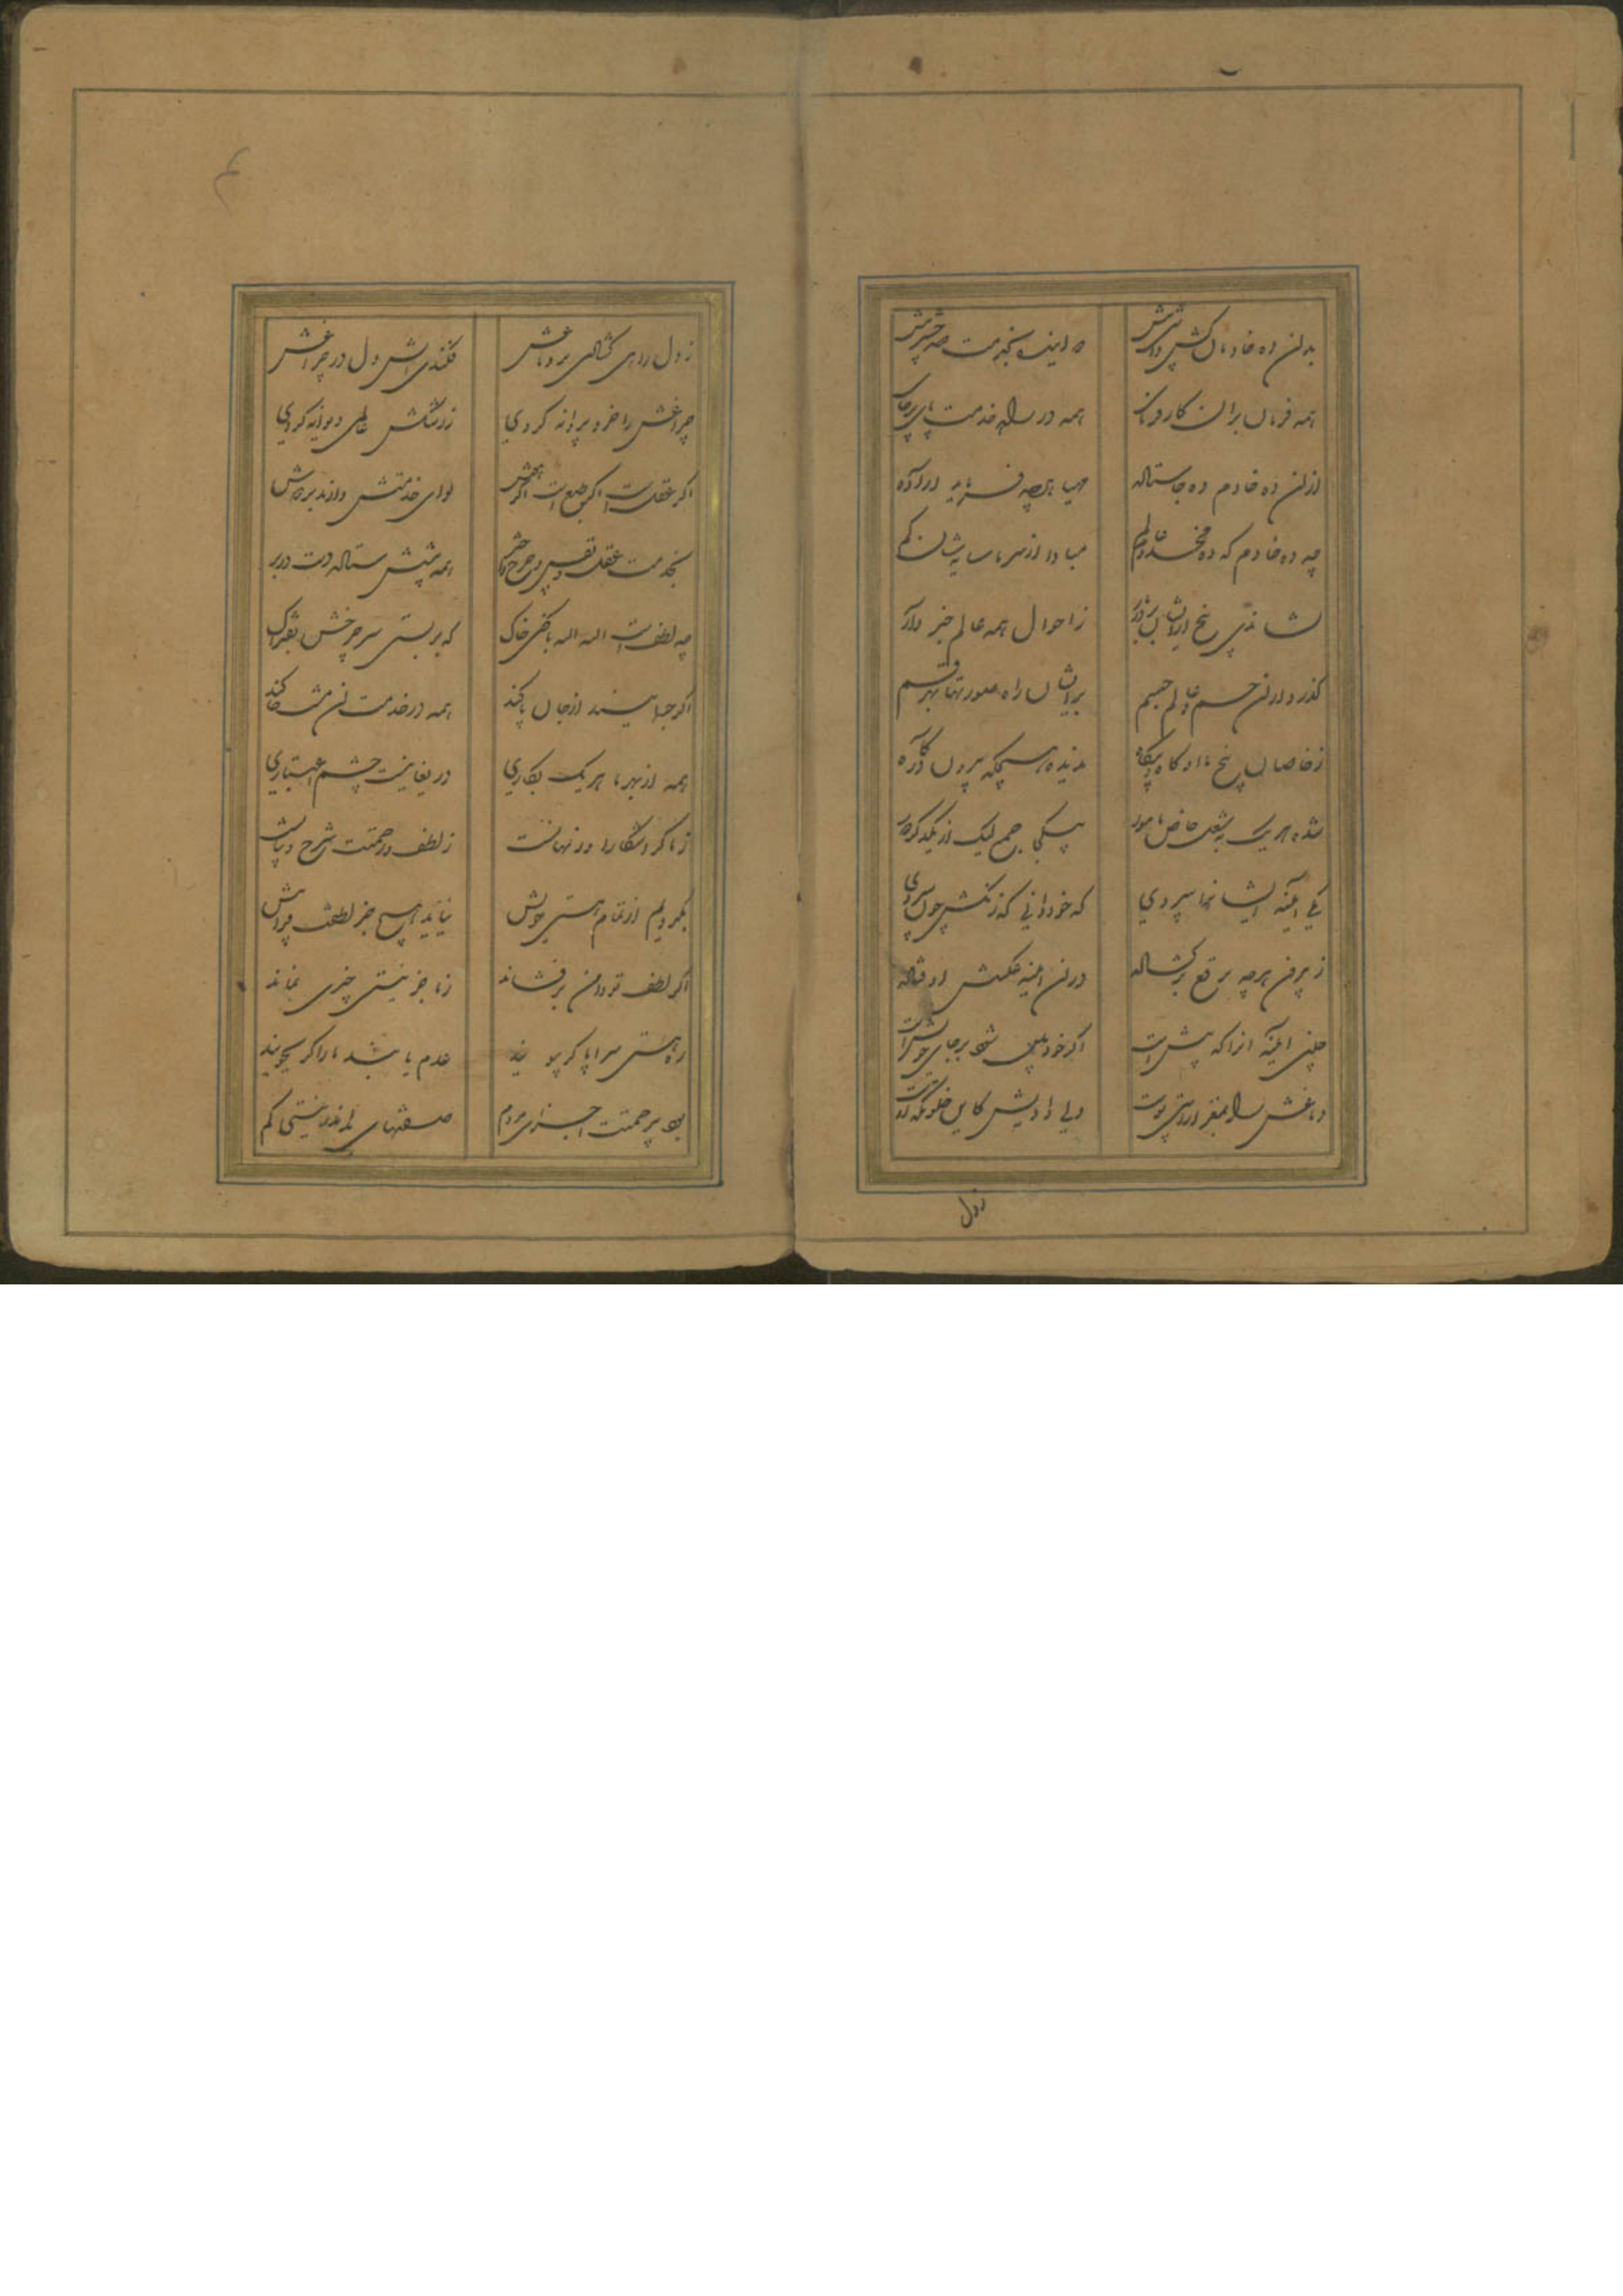 بدان ده خادمان کش داشتی پیش
همه فرمان بران کار فرمای
همه در راه خدمت پای بر جای
ازان ده خادم ده جا ستاده
مهیا هرچه فرماید اراده
چه ده خادم که ده مخدوم عالم
مبادا از سر ما سایه شان کم
نشاندی پنج ازایشان بر در بار
ز احوال همه عالم خبردار
گذر دار آن جسم عالم جسم
برایشان راه صورتها ز هر قسم
ز خاصان پنج با او گاه و بیگاه
ندیده هیچگه بیرون در گاه
شده هر یک به شغل خاص مامور
به یکجا جمع لیک از یکدگر دور
یکی آیینه ایشان را سپردی
که خود دانی که زنگش چون ستردی
ز بیرون هرچه برقع برگشاده
در آن آیینه عکسش اوفتاده
چنین آیینه آنرا که پیش است
اگر خودبین شود بر جای خویش است
دماغش را به مغز آراستی پوست
ولی دادیش کاین خلوتگه اوست
زدل
ز دل راهی گشادی بر دماغش
فکندی آتش دل در چراغش
چراغش را خرد پروانه کردی
ز رشکش عالمی دیوانه کردی
اگر عقل است اگر طبع است اگر هوش
لوای خدمتش دارند بر دوش
بخدمت عقل و نفس و چرخ و اختر
همه پیشش ستاده دست در بر
چه لطف است الله الله با کفی خاک
که بربستی سر چرخش بفتراک
اگر جسمیند از جان پاکند
همه در خدمت این مشت خاکند
همه از بهر ما هر یک بکاری
دریغا نیست چشم اعتباری
ز ما گر آشکارا ور نهانست
ز لطف و رحمتت شرح و بیانست
بگردیم از تمام هستی خویش
نیاید هیچ جز لطف تو در پیش
اگر لطف تو دامن برفشاند
ز ما جز نیستی چیزی نماند
ره هستی سراپا گر بپویند
عدم یابند ما را گر بجویند
بود بر رحمتت اجزای مردم
صفتهای تو اندر نیستی گم